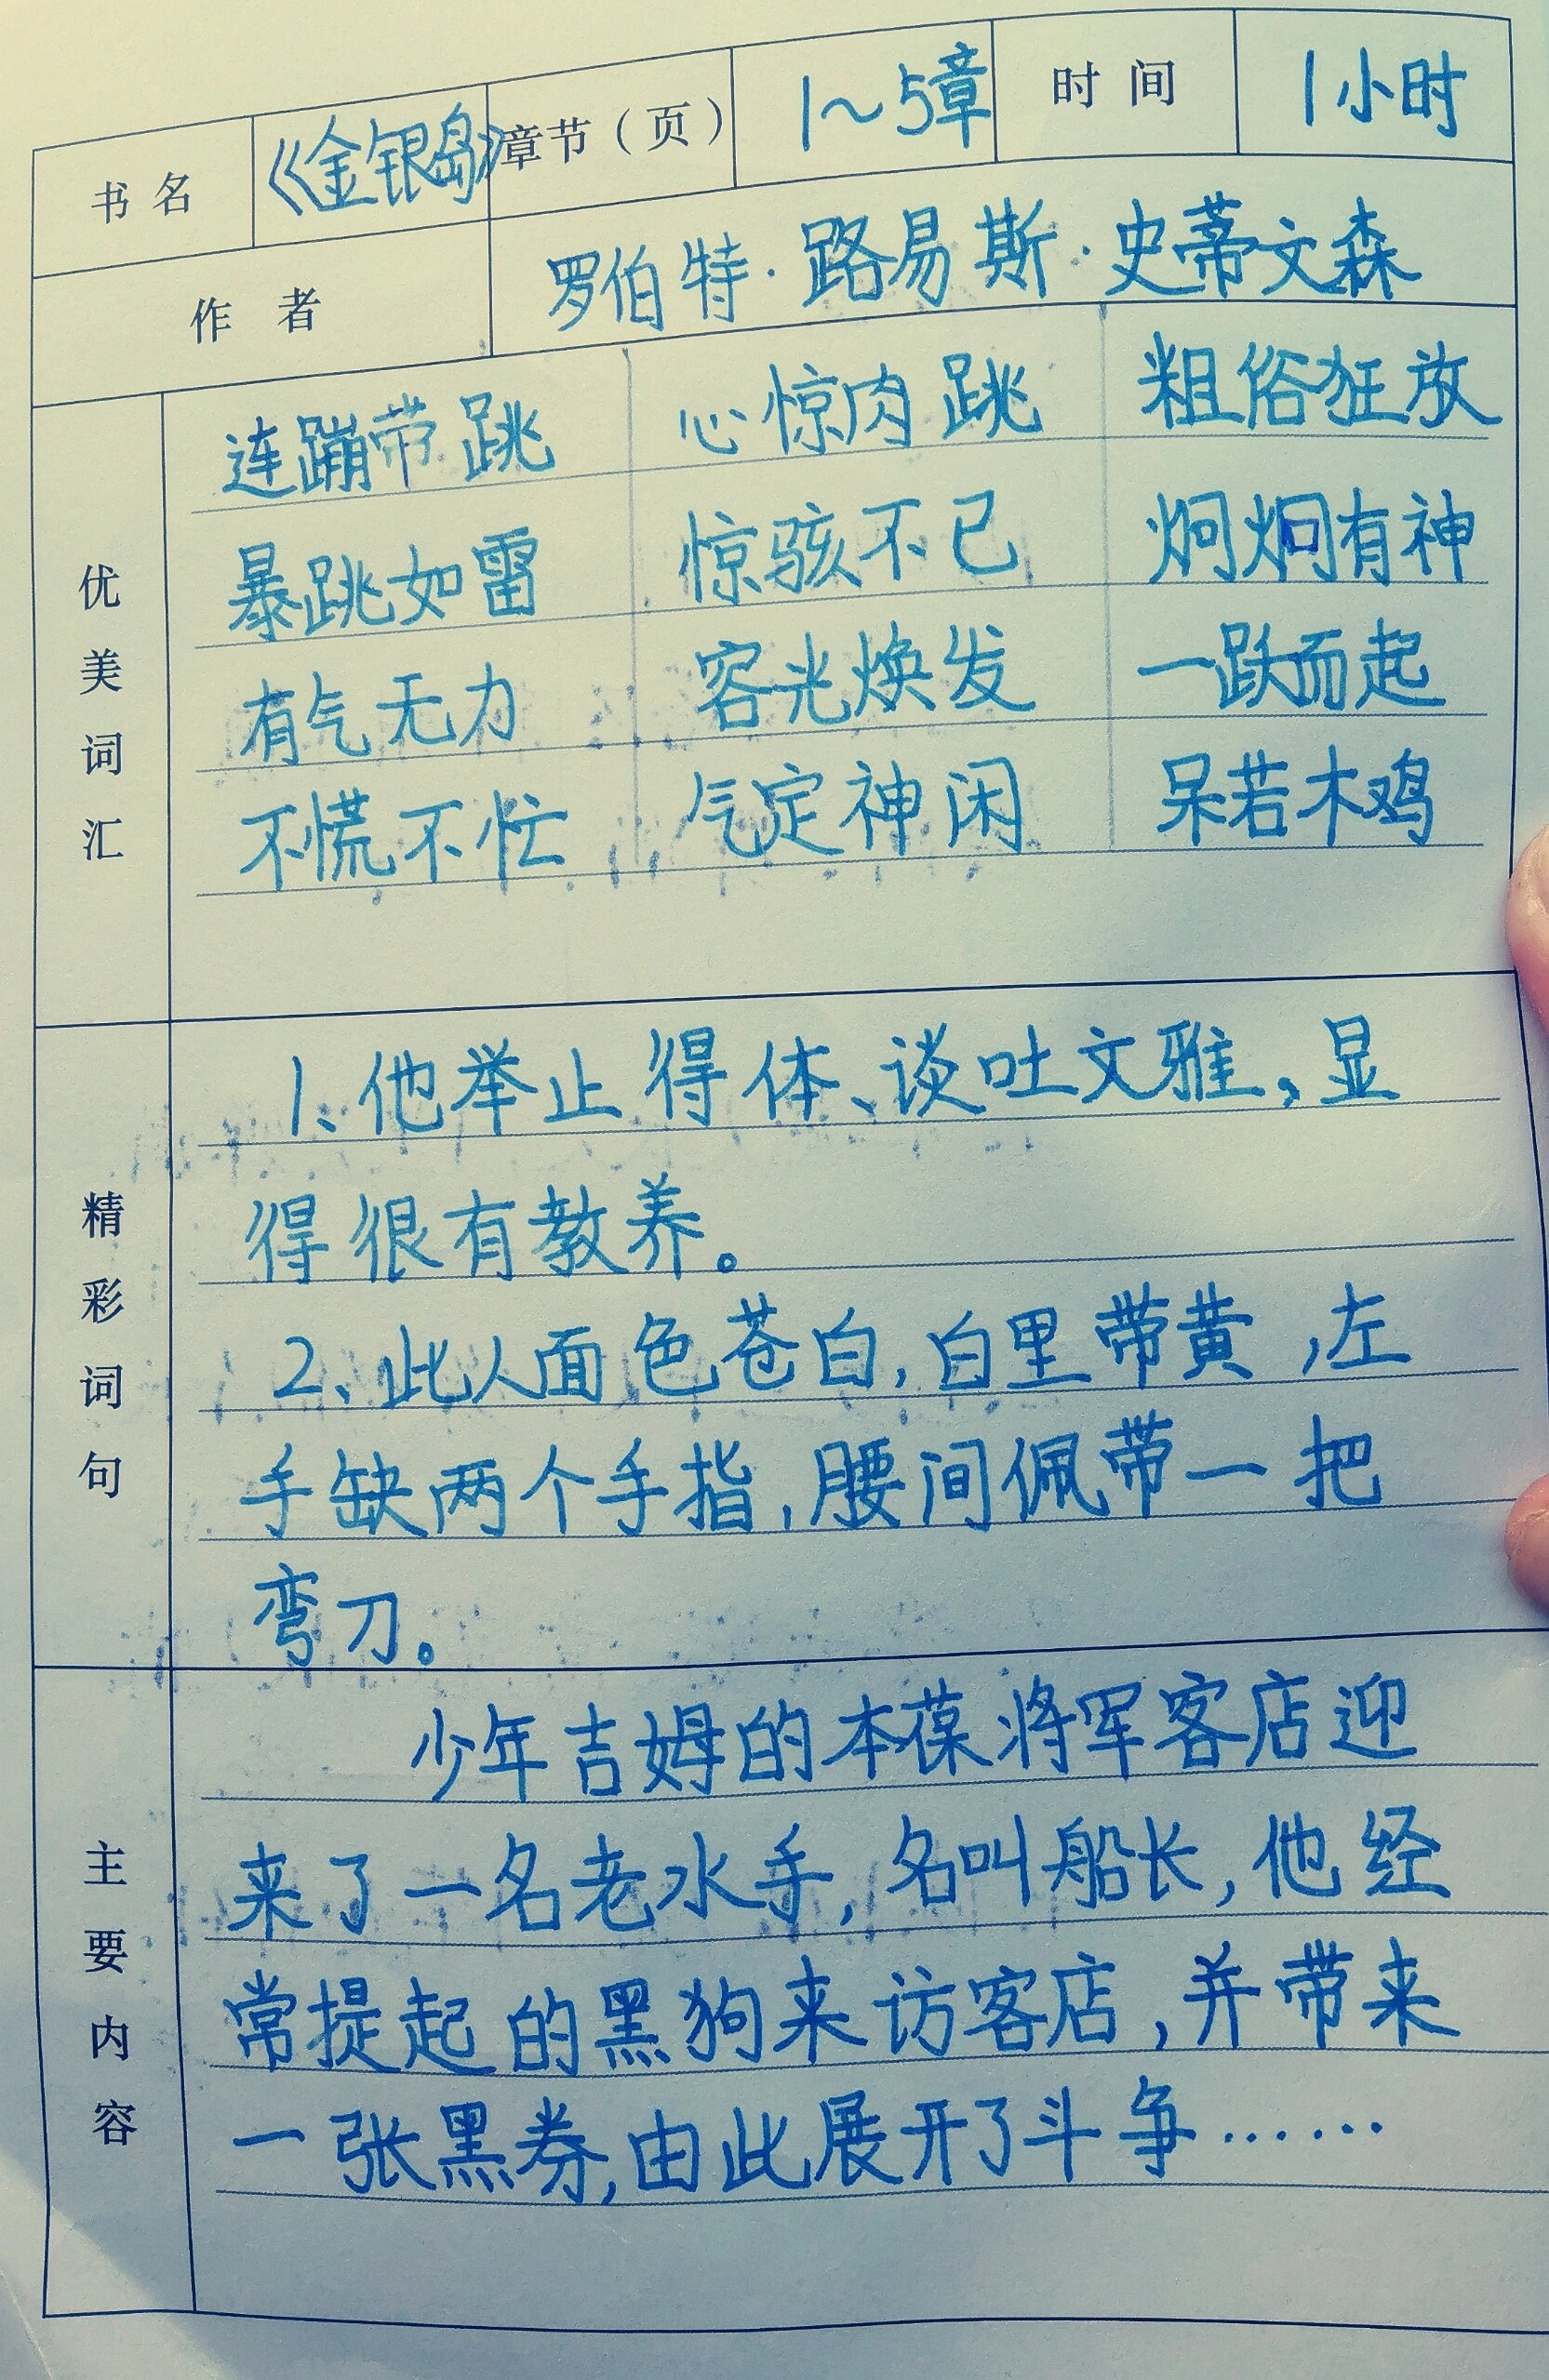 书名 《金银岛》 章节（页） 1～5章 时间 1小时
作者 罗伯特·路易斯·史蒂文森
优美词汇
连蹦带跳 心惊肉跳 粗俗狂放
暴跳如雷 惊骇不已 炯炯有神
有气无力 容光焕发 一跃而起
不慌不忙 气定神闲 呆若木鸡
精彩词句
1、他举止得体、谈吐文雅,显
得很有教养。
2、此人面色苍白,白里带黄,左
手缺两个手指,腰间佩带一把
弯刀。
主要内容
少年吉姆的本葆将军客店迎
来了一名老水手,名叫船长,他经
常提起的黑狗来访客店,并带来
一张黑券,由此展开了斗争……